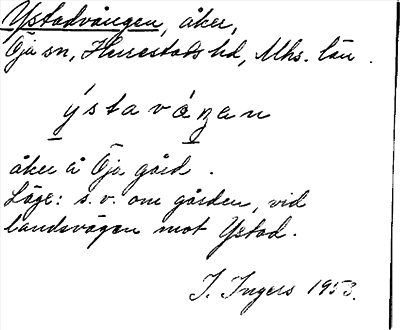 Ystadvången, åker,
Öja sn, Herrestads hd, Mhs. län.
ýstavåŋən
åker å Öja gård.
Läge: s. v. om gården, vid
landsvägen mot Ystad.
I. Ingers 1953.